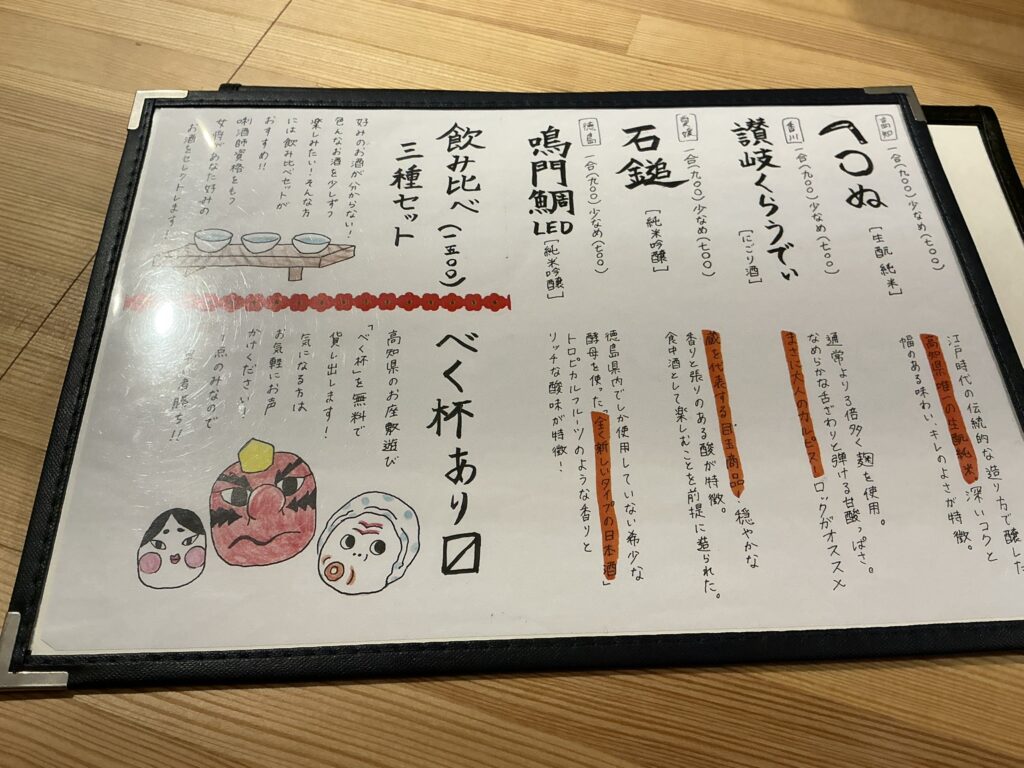 高知
一合(九〇〇)少なめ(七〇〇)
[生酛純米]
江戸時代の伝統的な造り方で醸した
高知県唯一の生酛純米。深いコクと
幅のある味わい、キレのよさが特徴。
香川
一合(九〇〇)少なめ(七〇〇)
讃岐くらうでぃ
[にごり酒]
通常より3倍多く麹を使用。
なめらかな舌ざわりと弾ける甘酸っぱさ。
まさに大人のカルピス!ロックがオススメ
愛媛
一合(九〇〇)少なめ(七〇〇)
石鎚
[純米吟醸]
蔵を代表する目玉商品。穏やかな
香りと張りのある酸が特徴。
食中酒として楽しむことを前提に造られた。
徳島
一合(九〇〇)少なめ(七〇〇)
鳴門鯛
LED
[純米吟醸]
徳島県内でしか使用していない希少な
酵母を使った「全く新しいタイプの日本酒」
トロピカルフルーツのような香りと
リッチな酸味が特徴!
飲み比べ(一五〇〇)
三種セット
好みのお酒が分からない!
色んなお酒を少しずつ
楽しみたい!そんな方
には飲み比べセットが
おすすめ!!
唎酒師資格をもつ
女将があなた好みの
お酒をセレクトします!
べく杯あり〼
高知県のお座敷遊び
「べく杯」を無料で
貸し出します!
気になる方は
お気軽にお声
がけください!
一点のみなので
早い者勝ち!!